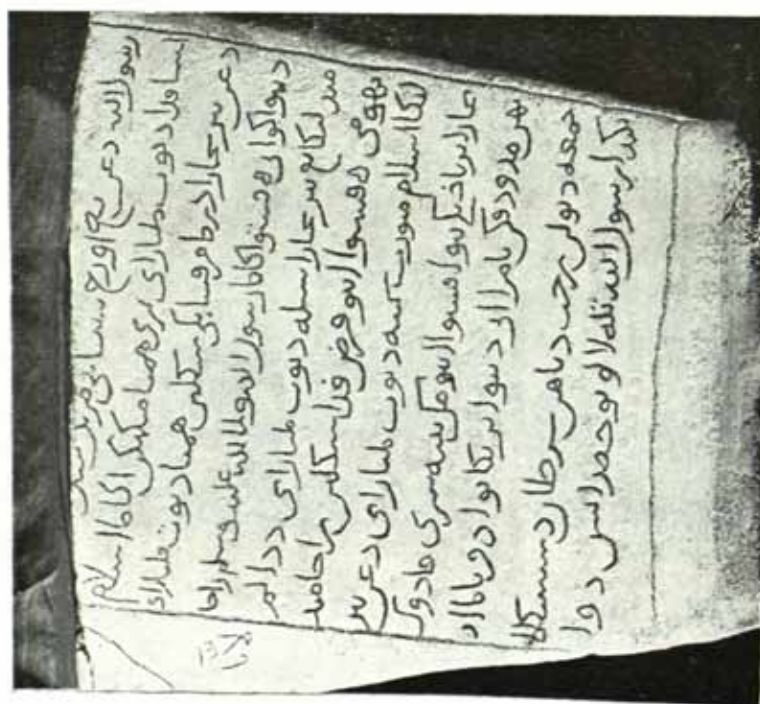 رسول الله دڠن يڠ اورڠ سبا[ڬي] مريك
اسا فد دبوت ملراي بري همبا منڬهكن اڬام اسلام
دڠن بنر بچارا درم مرقسا بڬي سكلين همبا دبوت ملراي
دبنواكو اين فنتوا اڬام رسول الله صلى الله عليه وسلم راج
مندلك يڠ بنر بچارا سبله دبوت ملراي ددالم
بهوم فنتوا ايت فرض فد سكلين راج مند
لك اسلام منورت ستيته دبوت ملراي دڠن بنر
بچارا برباجيكي بنوا فنتوا ايت مك تيته سري فادوك
توهن مدودقكن تامرا اين دبنوا ترڠكانو اد فرتام اد
جمعة دبولن رجب دتاهن سرطان دسسنكال
بڬند رسول الله تله لالو توجه راتس دوا